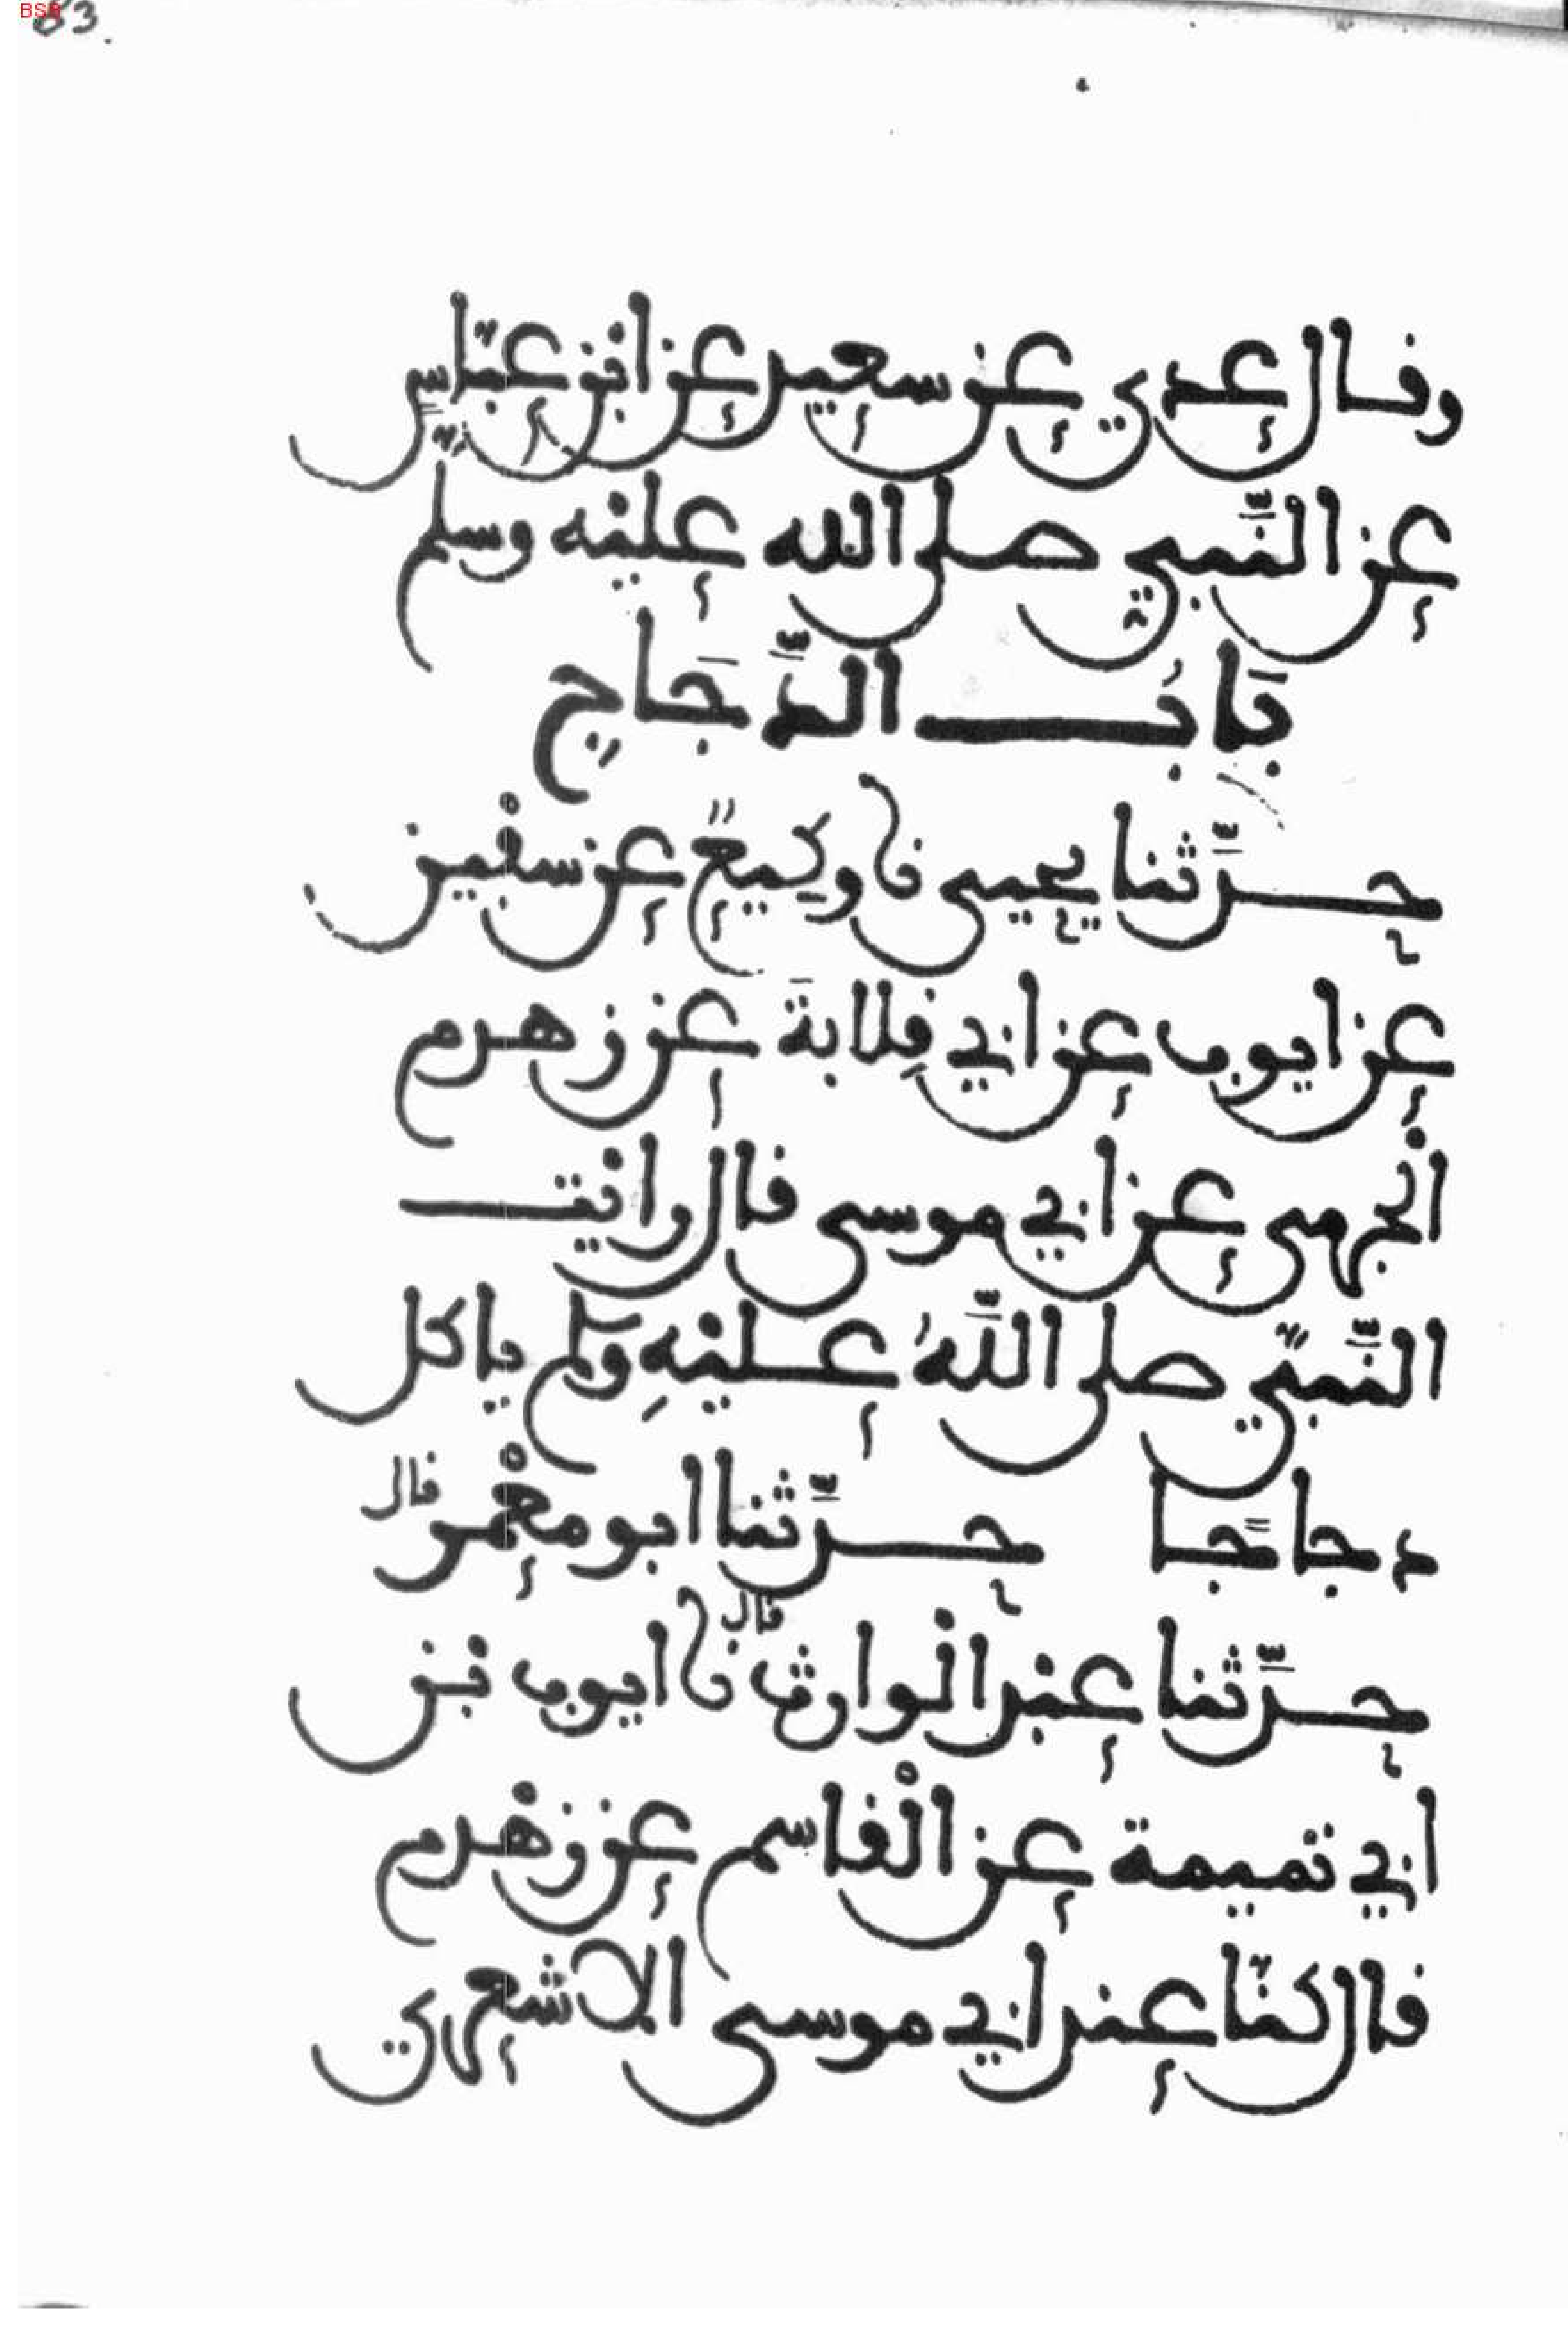 BSB
83.
وقال عدي عن سعيد عن ابن عبّاس
عن النّبي صلى الله عليْه وسلم
بَابُ الدَّجَاجِ
حدَّثنا يحيى نا وكيعٌ عن سفْين
عن ايوب عن ابي قِلابةَ عن زهدم
الْجرمي عن ابي موسى قال رايْت
النَّبيَّ صلى اللَّهُ عليْهِ وسلم ياكل
دجاجًا حدَّثنا ابو معْمر قال
حدَّثنا عبْد الْوارث قال نا ايوب بن
ابي تميمة عن الْقاسم عن زهْدم
قال كنّا عند ابي موسى الاشعري